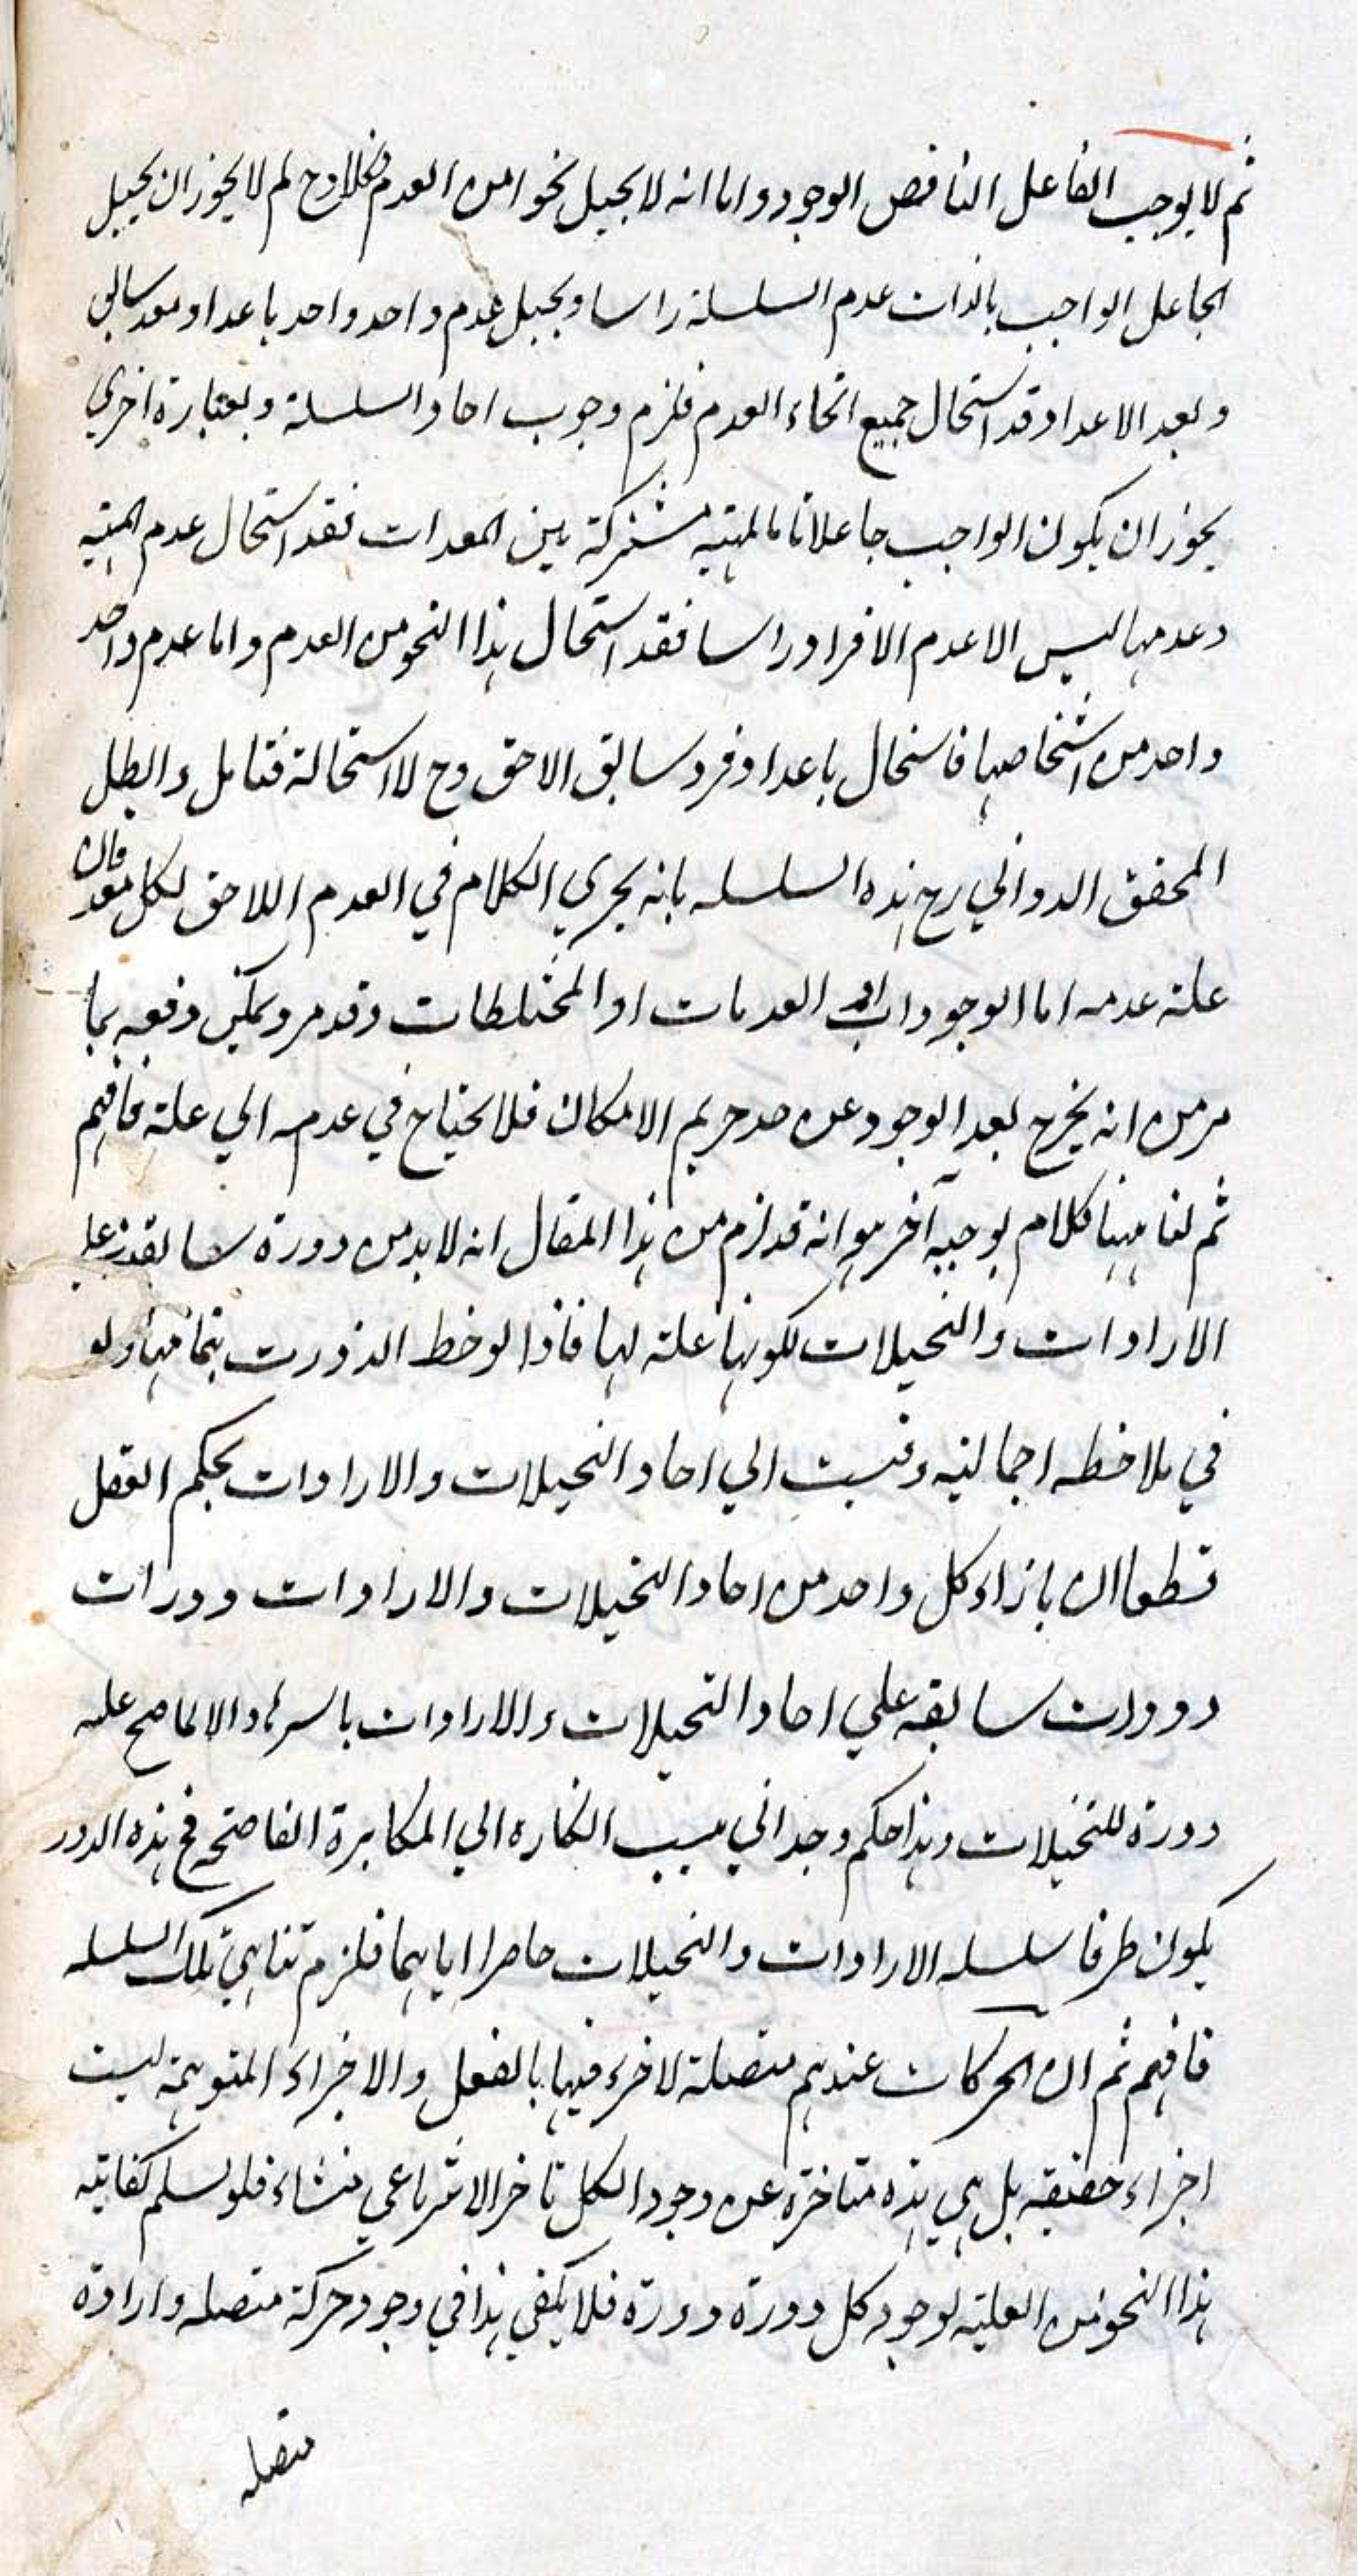 ثم لا يوجب الفاعل الناقص الوجود واما انه لا يحيل نحوا من العدم فكلا وح لم لا يجوز ان يحيل
الجاعل الواجب بالذات عدم السلسلة راسا ويحيل عدم واحد واحد باعداد معد سابق
وبعد الاعداد قد استحال جميع انحاء العدم فلزم وجوب احاد السلسلة وبعبارة اخري
يجوز ان يكون الواجب جاعلا تاما لمهية مشتركة بين المعدات فقد استحال عدم المهية
وعدمها ليس الا عدم الافراد راسا فقد استحال هذا النحو من العدم واما عدم واحد
واحد من اشخاصها فاستحال باعداد فرد سابق الاحق وح لا استحالة فتامل وابطل
المحقق الدواني رح هذه السلسله بانه يجري الكلام في العدم اللاحق لكل معد فان
علة عدمه اما الوجودات او العدمات او المختلطات وقد مر ويمكن دفعه بما
مر من انه يخرج بعد الوجود عن حد حريم الامكان فلا يحتاج في عدمه الي علة فافهم
ثم لنا ههنا كلام بوجه آخر هو انه قد لزم من هذا المقال انه لا بد من دورة سابقة علي
الارادات والتخيلات لكونها علة لها فاذا لوحظ الدورت بتمامها ولو
في ملاحظه اجمالية ونسبت الي احاد التخيلات والارادات يحكم العقل
قطعا ان بازاء كل واحد من احاد التخيلات والارادات دورات
دورات سابقه علي احاد التخيلات والارادات باسرها والا لما صح علية
دورة للتخيلات وهذا حكم وجداني ينسب انكاره الي المكابرة الفاضحة فح هذه الدور
يكون طرفا سلسله الارادات والتخيلات حاصرا اياهما فلزم تناهي تلك السلسله
فافهم ثم ان الحركات عندهم متصلة لا جزء فيها بالفعل والاجزاء المتوهمة ليست
اجزاء حقيقه بل هي هذه متاخرة عن وجود الكل تاخر الانتزاعي منشاء فلو سلم كفاية
هذا النحو من العلية لوجود كل دورة دورة فلا يكفي هذا في وجود حركة متصله وارادة
متصله